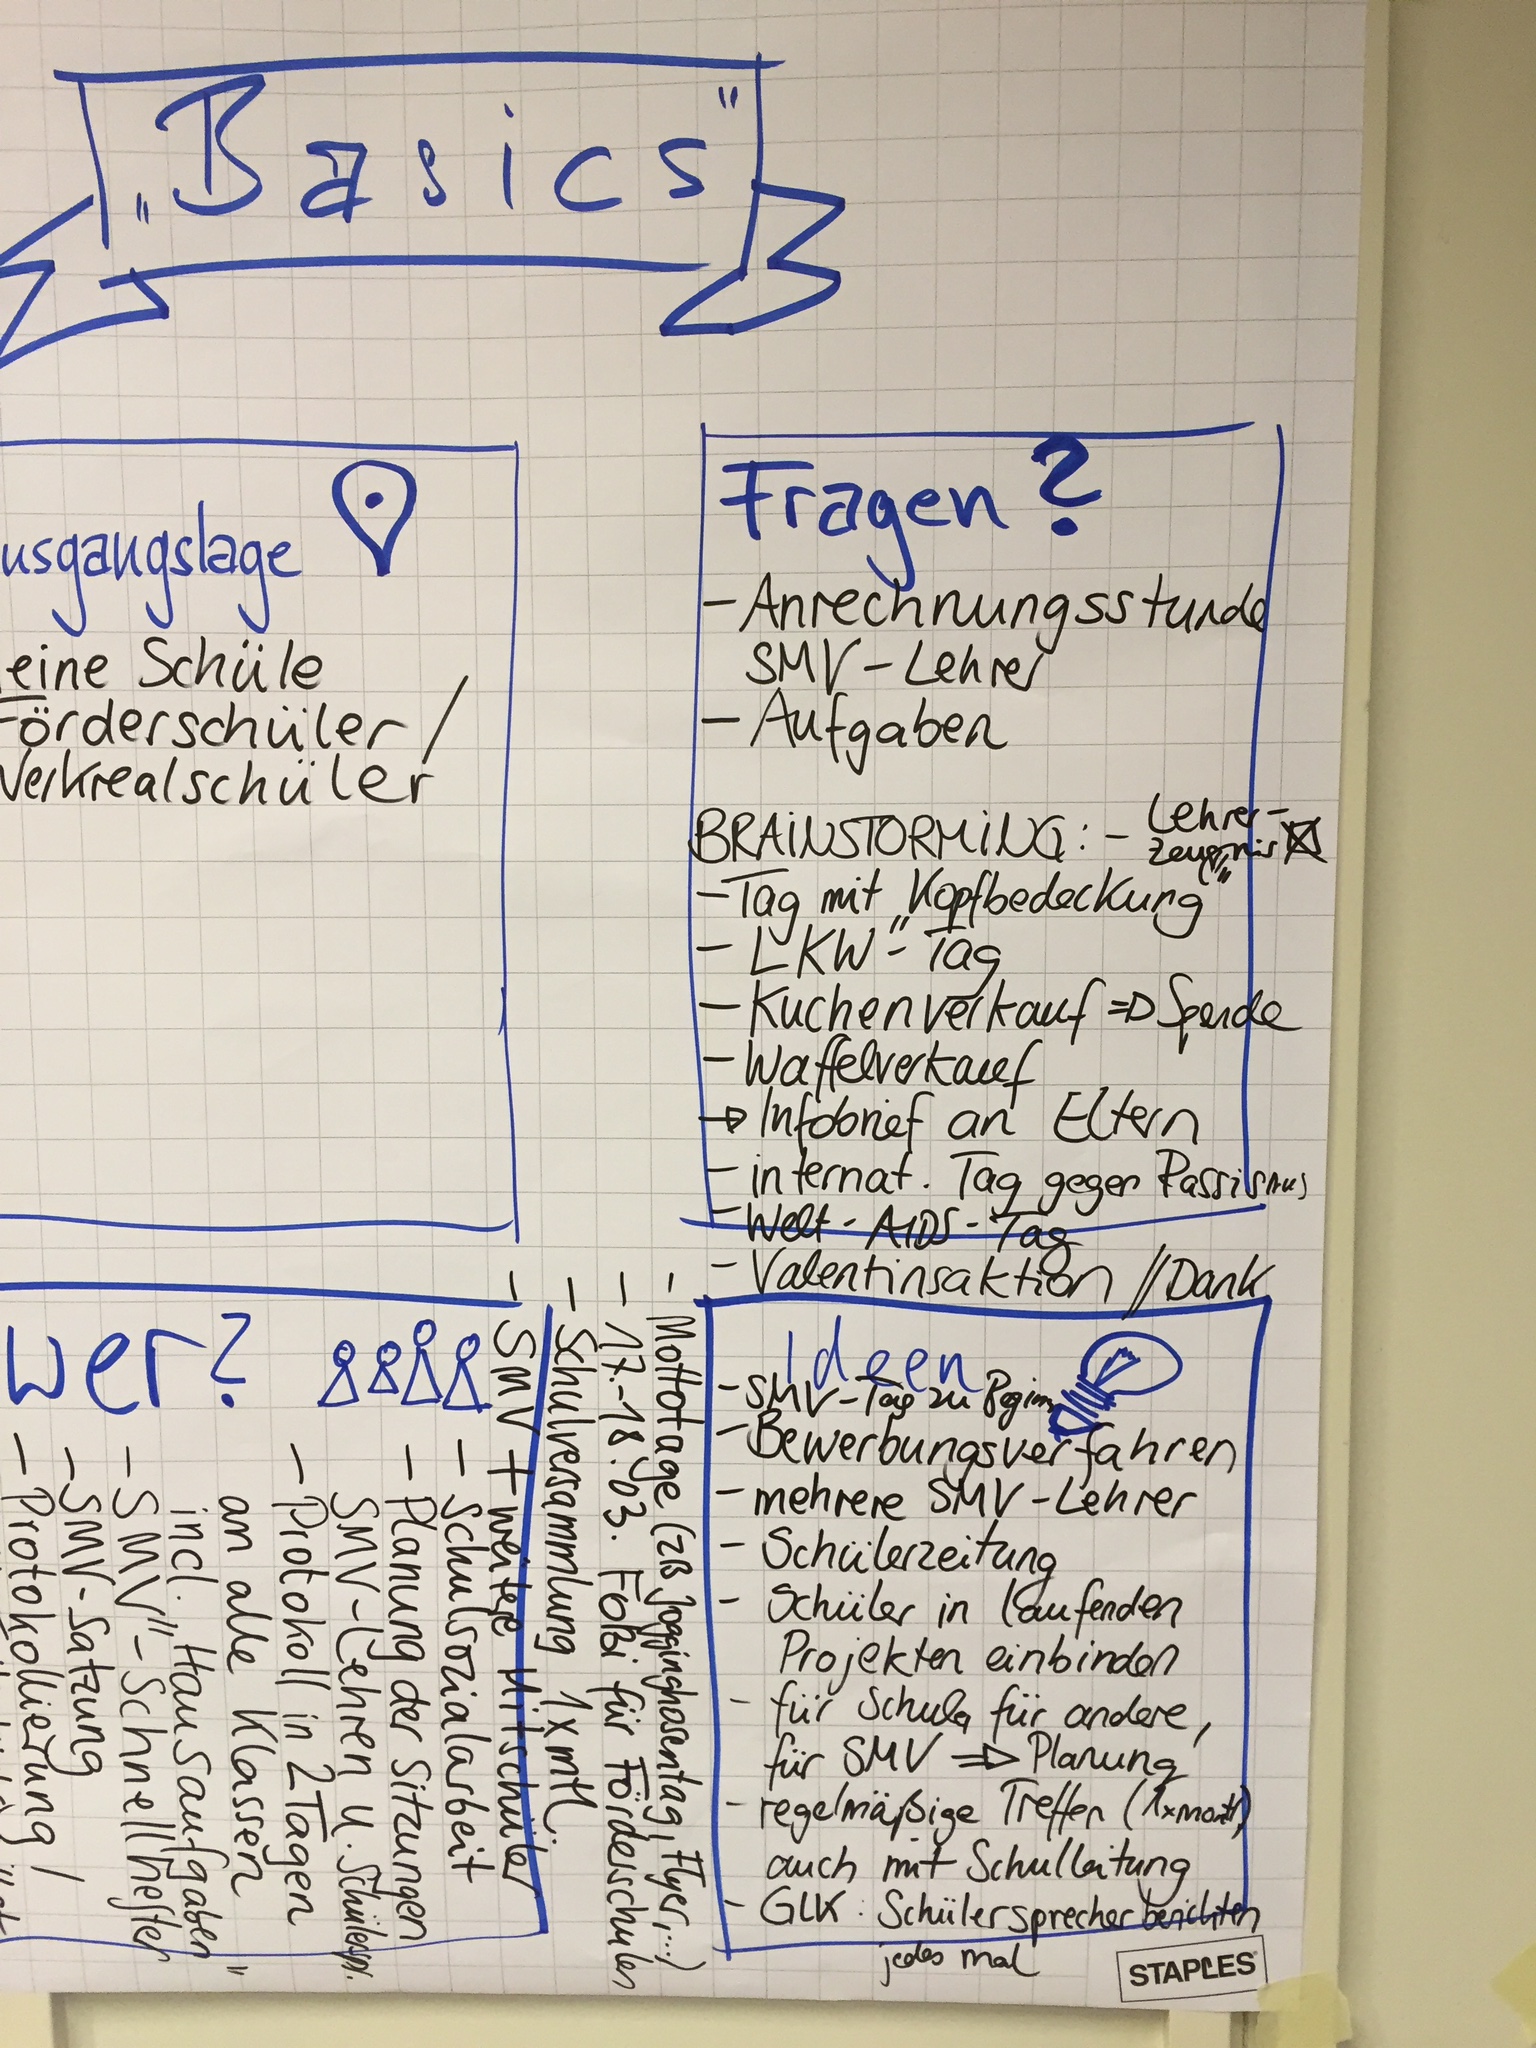 „Basics"
usgangslage
eine Schüle
Förderschüler /
Werkrealschüler
Fragen?
- Anrechnungsstunde
SMV-Lehrer
- Aufgaben
BRAINSTORMING: - Lehrer-
zeugnis
- Tag mit „Kopfbedeckung"
- LKW"-Tag
- Kuchenverkauf ⇒ Spende
- Waffelverkauf
→ Infobrief an Eltern
- internat. Tag gegen Rassismus
- Welt-AIDS-Tag
- Valentinsaktion // Dank
wer?
- SMV + weitere Mitschüler
- Schulsozialarbeit
- Planung der Sitzungen
SMV-Lehren u. Schülerspr.
- Protokoll in 2 Tagen
an alle Klassen
incl. „Hausaufgaben"
- SMV"-Schnellhefter
- SMV-Satzung
- Protokollierung /
- Mottotage (zB Jogginghosentag, Flyer,...)
- 17.-18.03. FoBi für Förderschulen
- Schulversammlung 1x mtl.
Ideen
- SMV-Tag zu Beginn
- Bewerbungsverfahren
- mehrere SMV-Lehrer
- Schülerzeitung
- Schüler in laufenden
Projekten einbinden
- für Schule, für andere,
für SMV ⇒ Planung
- regelmäßige Treffen (1x monatl)
auch mit Schulleitung
- GLK: Schülersprecher berichten
jedes mal
STAPLES